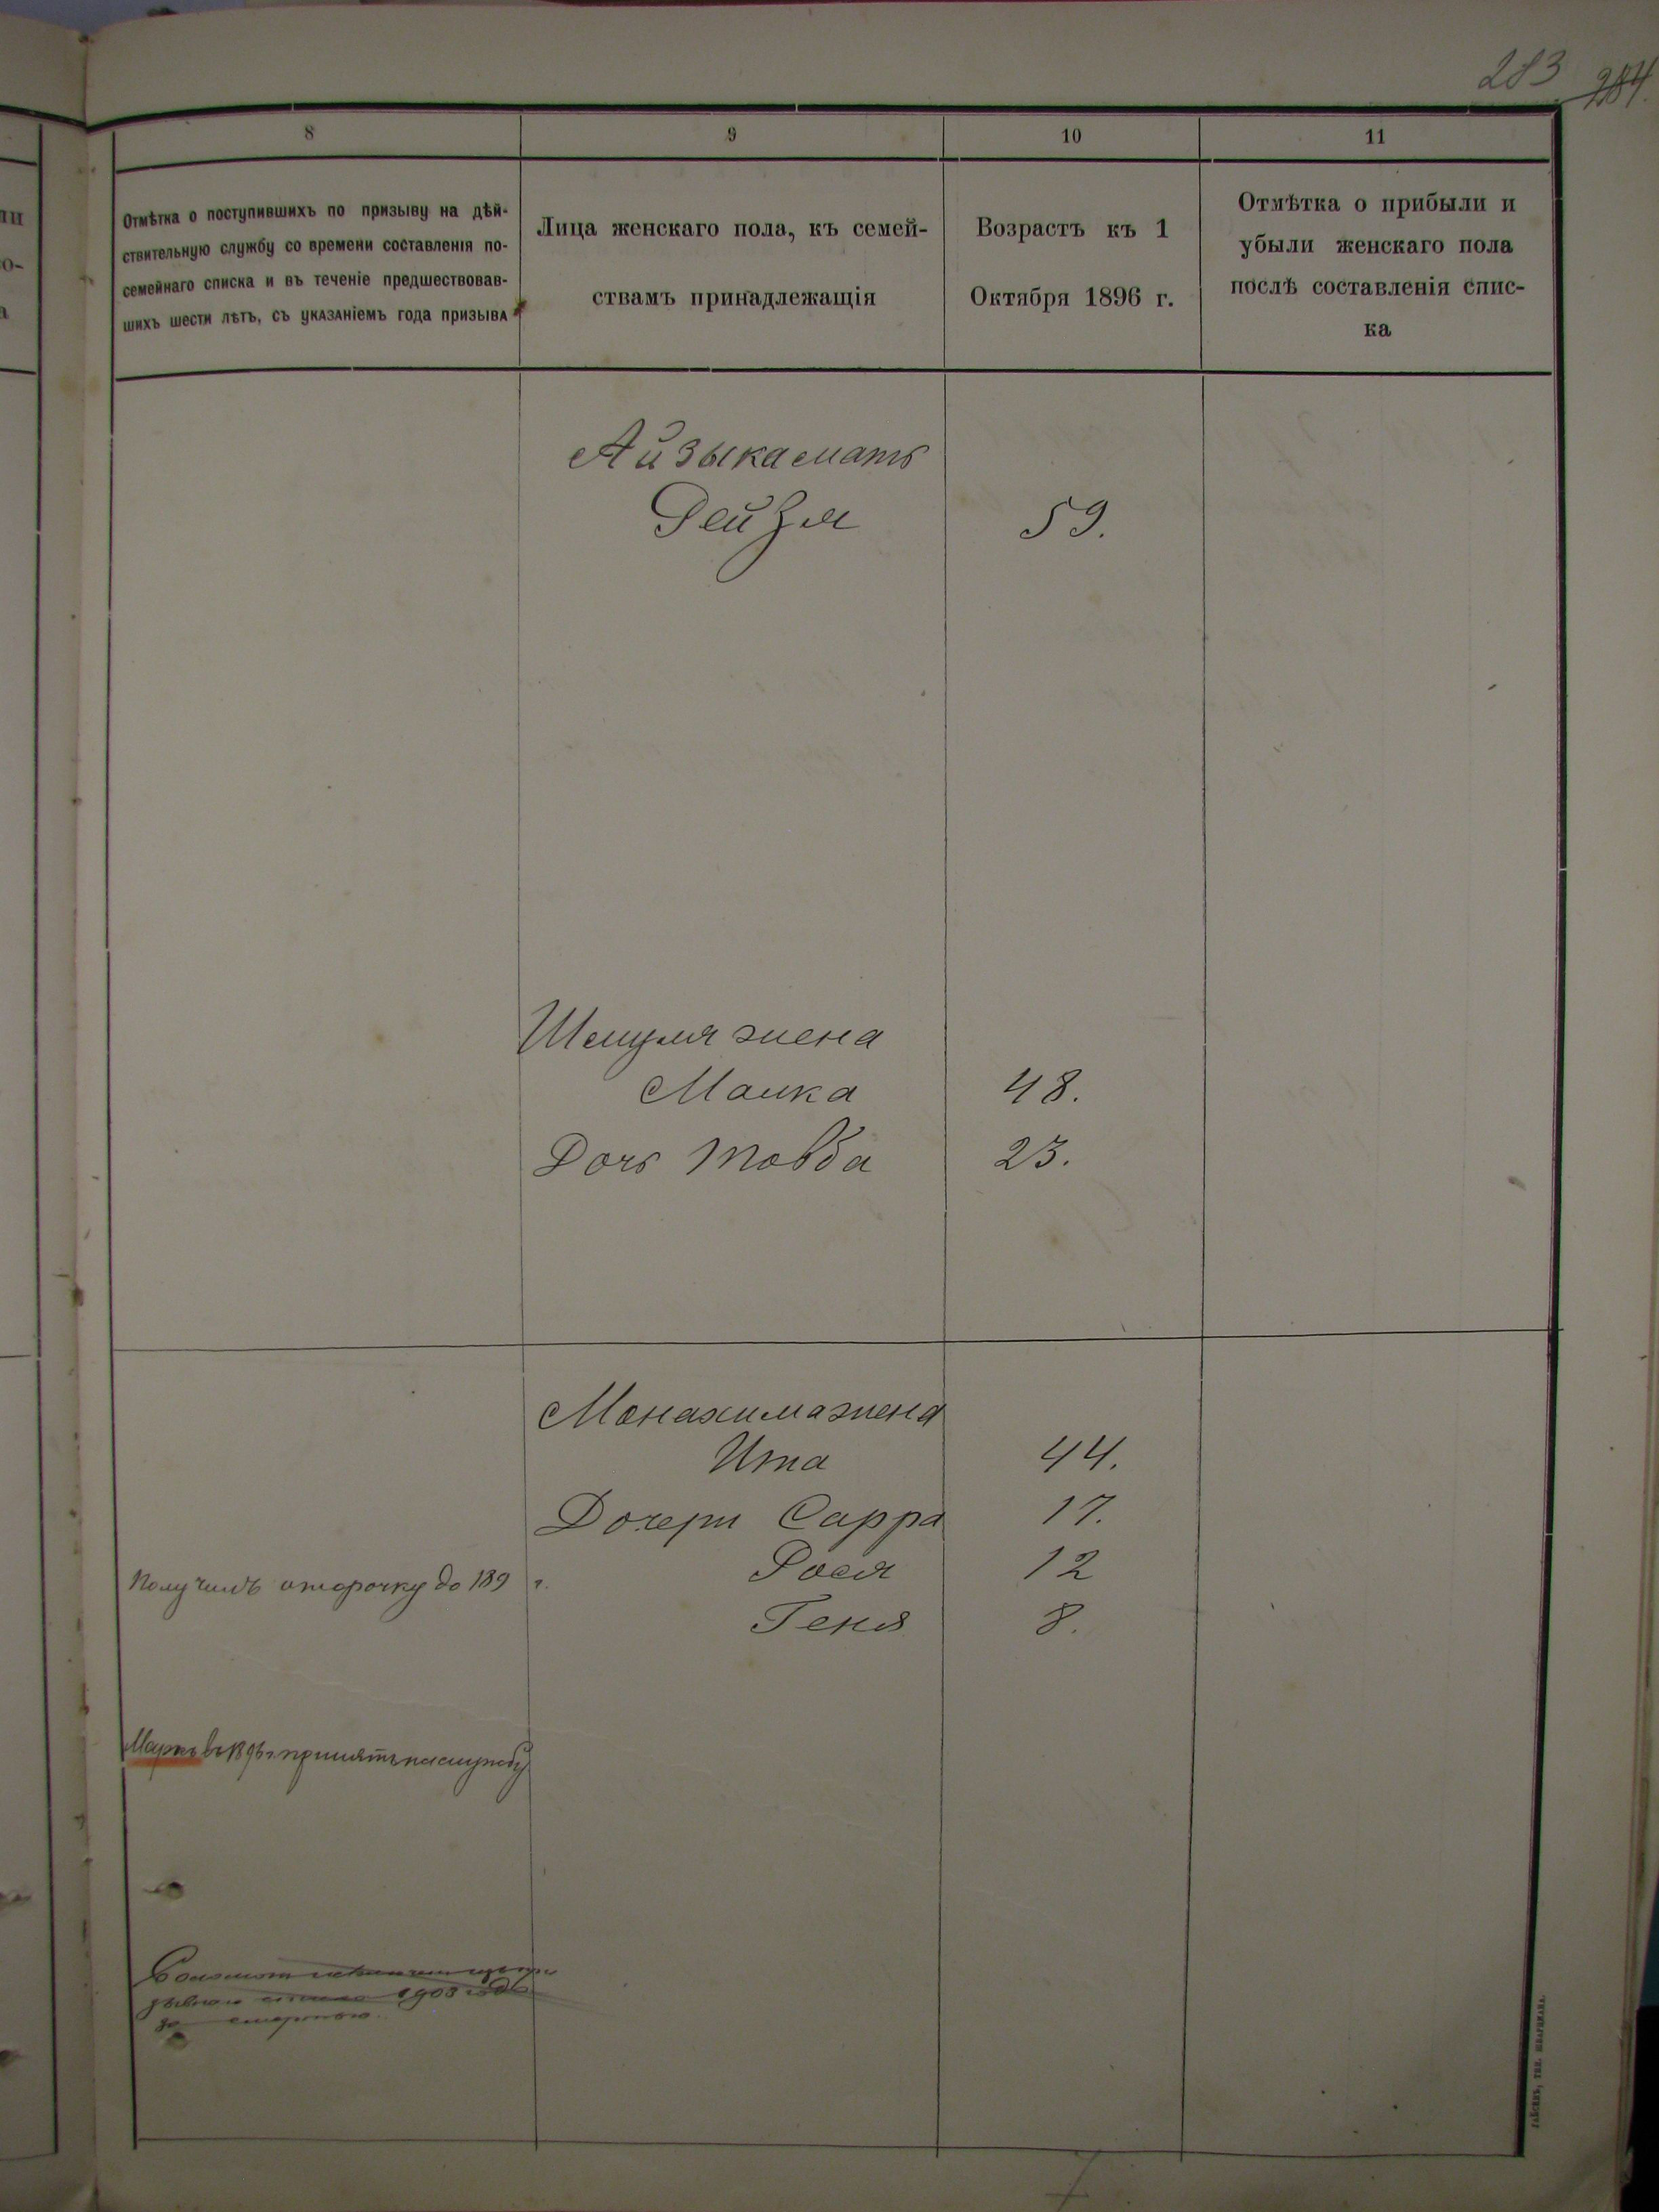 283 284.
8
9
10
11
Отмѣтка о поступившихъ по призыву на дѣй-
ствительную службу со времени составленія по-
семейнаго списка и въ теченіе предшествовав-
шихъ шести лѣтъ, съ указаніемъ года призыва
Лица женскаго пола, къ семей-
ствамъ принадлежащія
Возрастъ къ 1
Октября 1896 г.
Отмѣтка о прибыли и
убыли женскаго пола
послѣ составленія спис-
ка
Айзыка мать
Рейзя 59.
Шмуля жена
Малка 48.
Дочь Товба 23.
Монахима жена
Ита 44.
Дочери Сарра 17.
Рося 12
Получилъ отсрочку до 189 г.
Геня 8.
въ 1896 г. принятъ на службу
1903
за смертью.